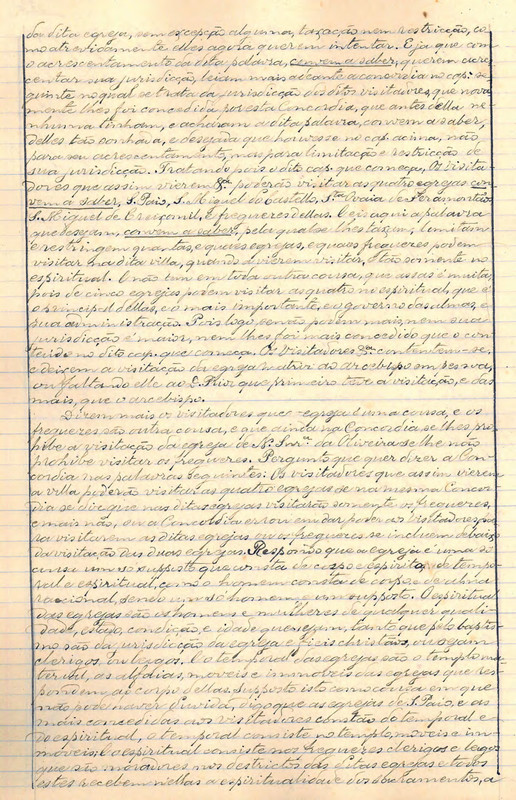 da dita egreja, sem excepção alguma, taxação nem restricção, co
mo atrevidamente elles agora querem intentar. E ja que com
o acrescentamento da dita palavra, convem a saber, querem acre
centar sua jurisdicção, leiam mais adeante a concordia no cap. se
quinto no qual se trata da jurisdicção dos ditos visitadores, que nova
mente lhes foi concedida por esta Concordia, que antes della ne
nhuma tinham, e acharam a dita palavra, convem a saber,
delles tão sonhada, e desejada que houvesse no cap. acima, não
para seu acrescentamento, mas para limitação e restricção de
sua jurisdicção. Tratando pois o dito cap. que começa, Os Visita-
dores que assim vierem &.ª poderão visitar as quatro egrejas con
vem a saber, S. Paio, S. Miguel do Castello, S.ta Ovaia de
S. Miguel de Creixomil, e freguezes dellas. Eis aqui a palavra
que desejam, convem a saber, pela qual se lhes taxam, limitam
e restringem quantas, e quaes egrejas, e quaes freguezes, podem
visitar na dita villa, quando vierem visitar, e tão somente no
espiritual. E não tem em toda outra cousa, que assas é muita,
pois de cinco egrejas podem visitar as quatro no espiritual, que é
o principal dellas, e o mais importante, e o governo das almas, e
sua administração. Pois logo, se não podem mais, nem sua
jurisdicção é maior, nem lhes foi mais concedido que o con
teudo no dito cap. que começa, Os Visitadores &.ª contentem-se,
e deixem a visitação da egreja matriz ao arcebispo em pessoa,
ou faltando elle ao S. Prior que primeiro teve a visitação, e das
mais, que o arcebispo.
Dizem mais os visitadores que egreja é uma cousa, e os
freguezes são outra cousa, e que ainda na Concordia se lhes pro
hibe a visitação da egreja de N. Snr.ª da Oliveira se lhe não
prohibe visitar os freguezes. Pergunto que quer dizer a Con-
cordia nas palavras seguintes. Os visitadores que assim vierem
a villa poderão visitar as quatro egrejas &.ª na mesma Concor
dia se diz que nas ditas egrejas visitarão somente os freguezes,
e mais não, ou a Concordia errou em dar poder aos Visitadores pa
ra visitarem as ditas egrejas, ou os freguezes se incluem debaixo
da visitação das duas egrejas. Respondo que a egreja é uma só
cousa e um só supposto que consta de corpo e espirito, de tempo-
ral e espiritual, como o homem consta de corpo e de alma
racional, sendo um só homem, e um supposto. O espiritual
das egrejas são os homens e mulheres de qualquer quali
dade, estado, condição, e idade que sejam, tanto que pelo baptis
mo são da jurisdicção da egreja e fieis christãos, ou sejam
clerigos, ou leigos. E o temporal das egrejas são o templo ma
terial, as alfaias, moveis e immoveis das egrejas que res-
pondem ao corpo dellas. Supposto isto como cousa em que
não pode haver duvida, digo que as egrejas de S. Paio, e as
mais concedidas aos visitadores constão de temporal e
do espiritual, o temporal consiste no templo, moveis e im-
moveis; o espiritual consiste nos freguezes clerigos e leigos
que são moradores nos destrictos das ditas egrejas e todos
estes recebem nellas a espiritualidade dos sacramentos, a